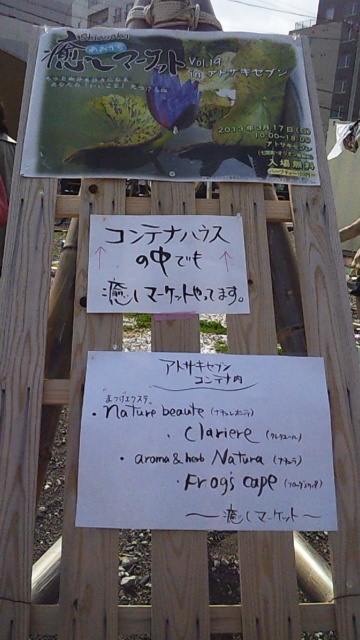 癒しマーケット
Vol.19
in アトサキセブン
2013年3月17日
10:00~18:00
アトサキセブン
入場無料
コンテナハウス
の中でも
↑ ↑
癒しマーケットやってます。
アトサキセブン
コンテナ内
まつげエクステ
・nature beaute (ナチュレボーテ)
・Clariere (クレリエール)
・aroma & herb Natura (ナチュラ)
・Frog's cape (フロッグスケイプ)
〜癒しマーケット〜